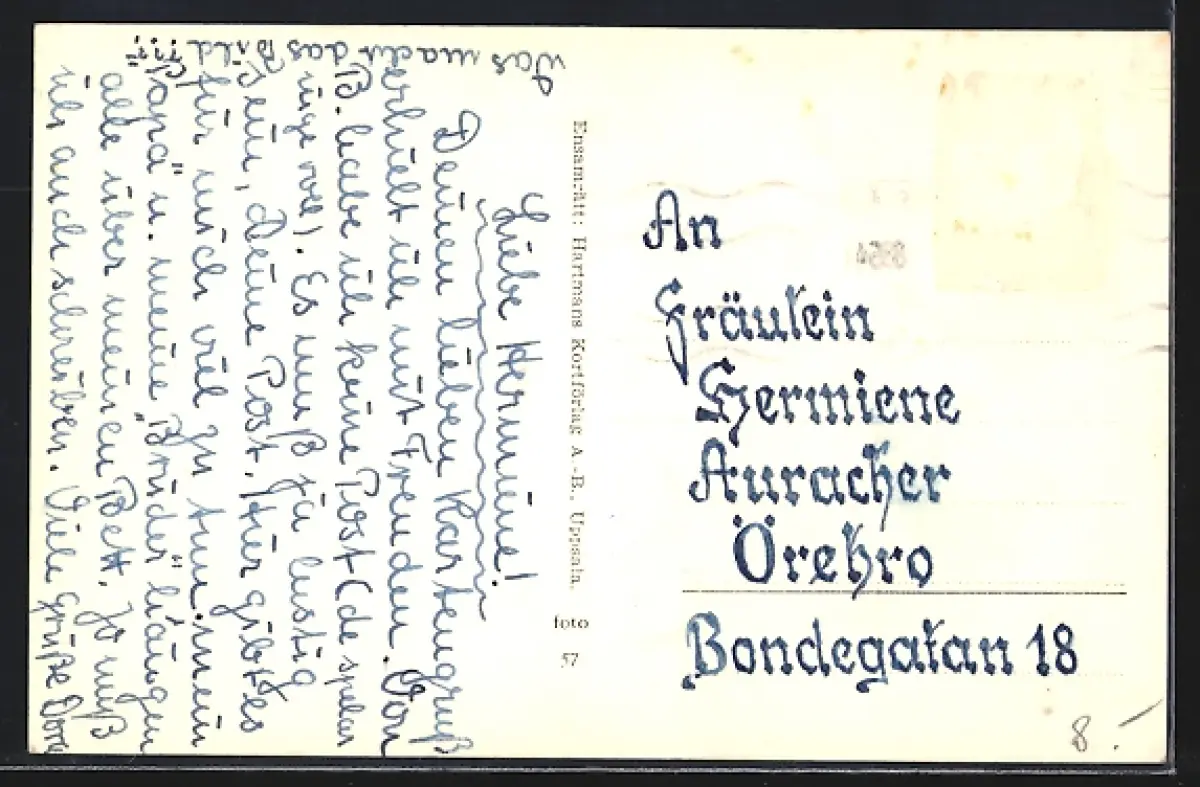 Liebe Hermine!
Deinen lieben Kartengruß
erhielt ich mit Freuden. Von
B. habe ich keine Post (de spelar
ingen roll). Es muß ja lustig
sein, Deine Post. Hier gibt es
für mich viel zu tun. mein
"Papa" u. meine "Brüder" hängen
alle über meinen Bett. Jo muß
ich auch schreiben. Viele Grüße Dora
Was macht das Bild ???
Ensamrätt: Hartmans Kortförlag A.-B., Uppsala.
foto
57
4268
An
Fräulein
Hermiene
Auracher
Örebro
Bondegatan 18
8.-